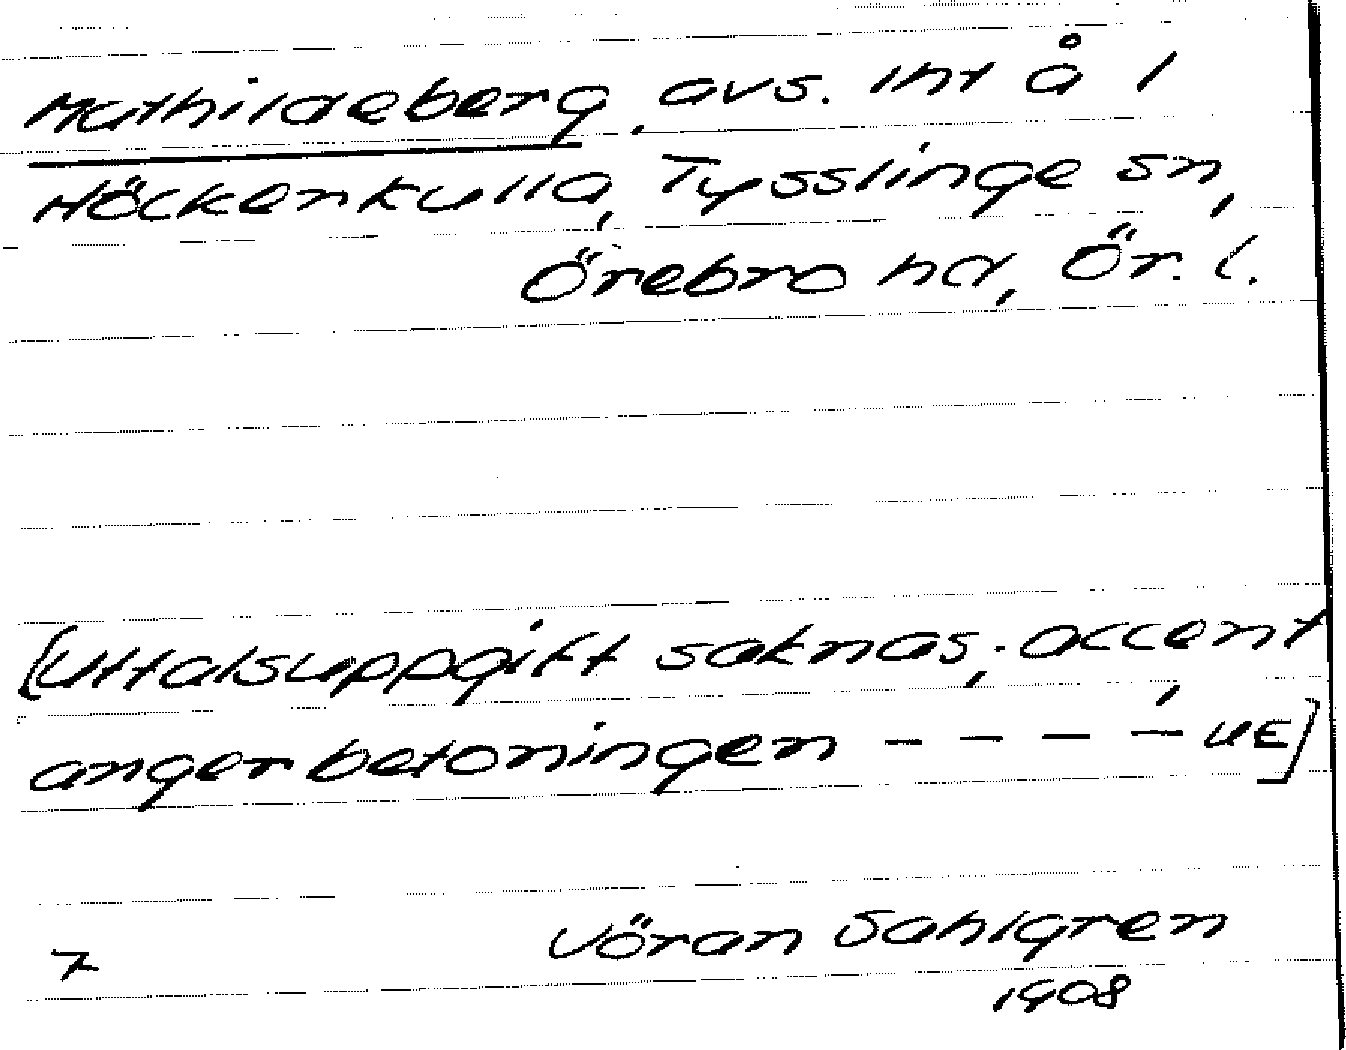 Mathildeberg, avs. lht å 1
Höckerkulla, Tysslinge sn,
Örebro hd, Ör. l.
[Uttalsuppgift saknas; accent
anger betoningen – – – –́ UE]
Jöran Sahlgren
1908